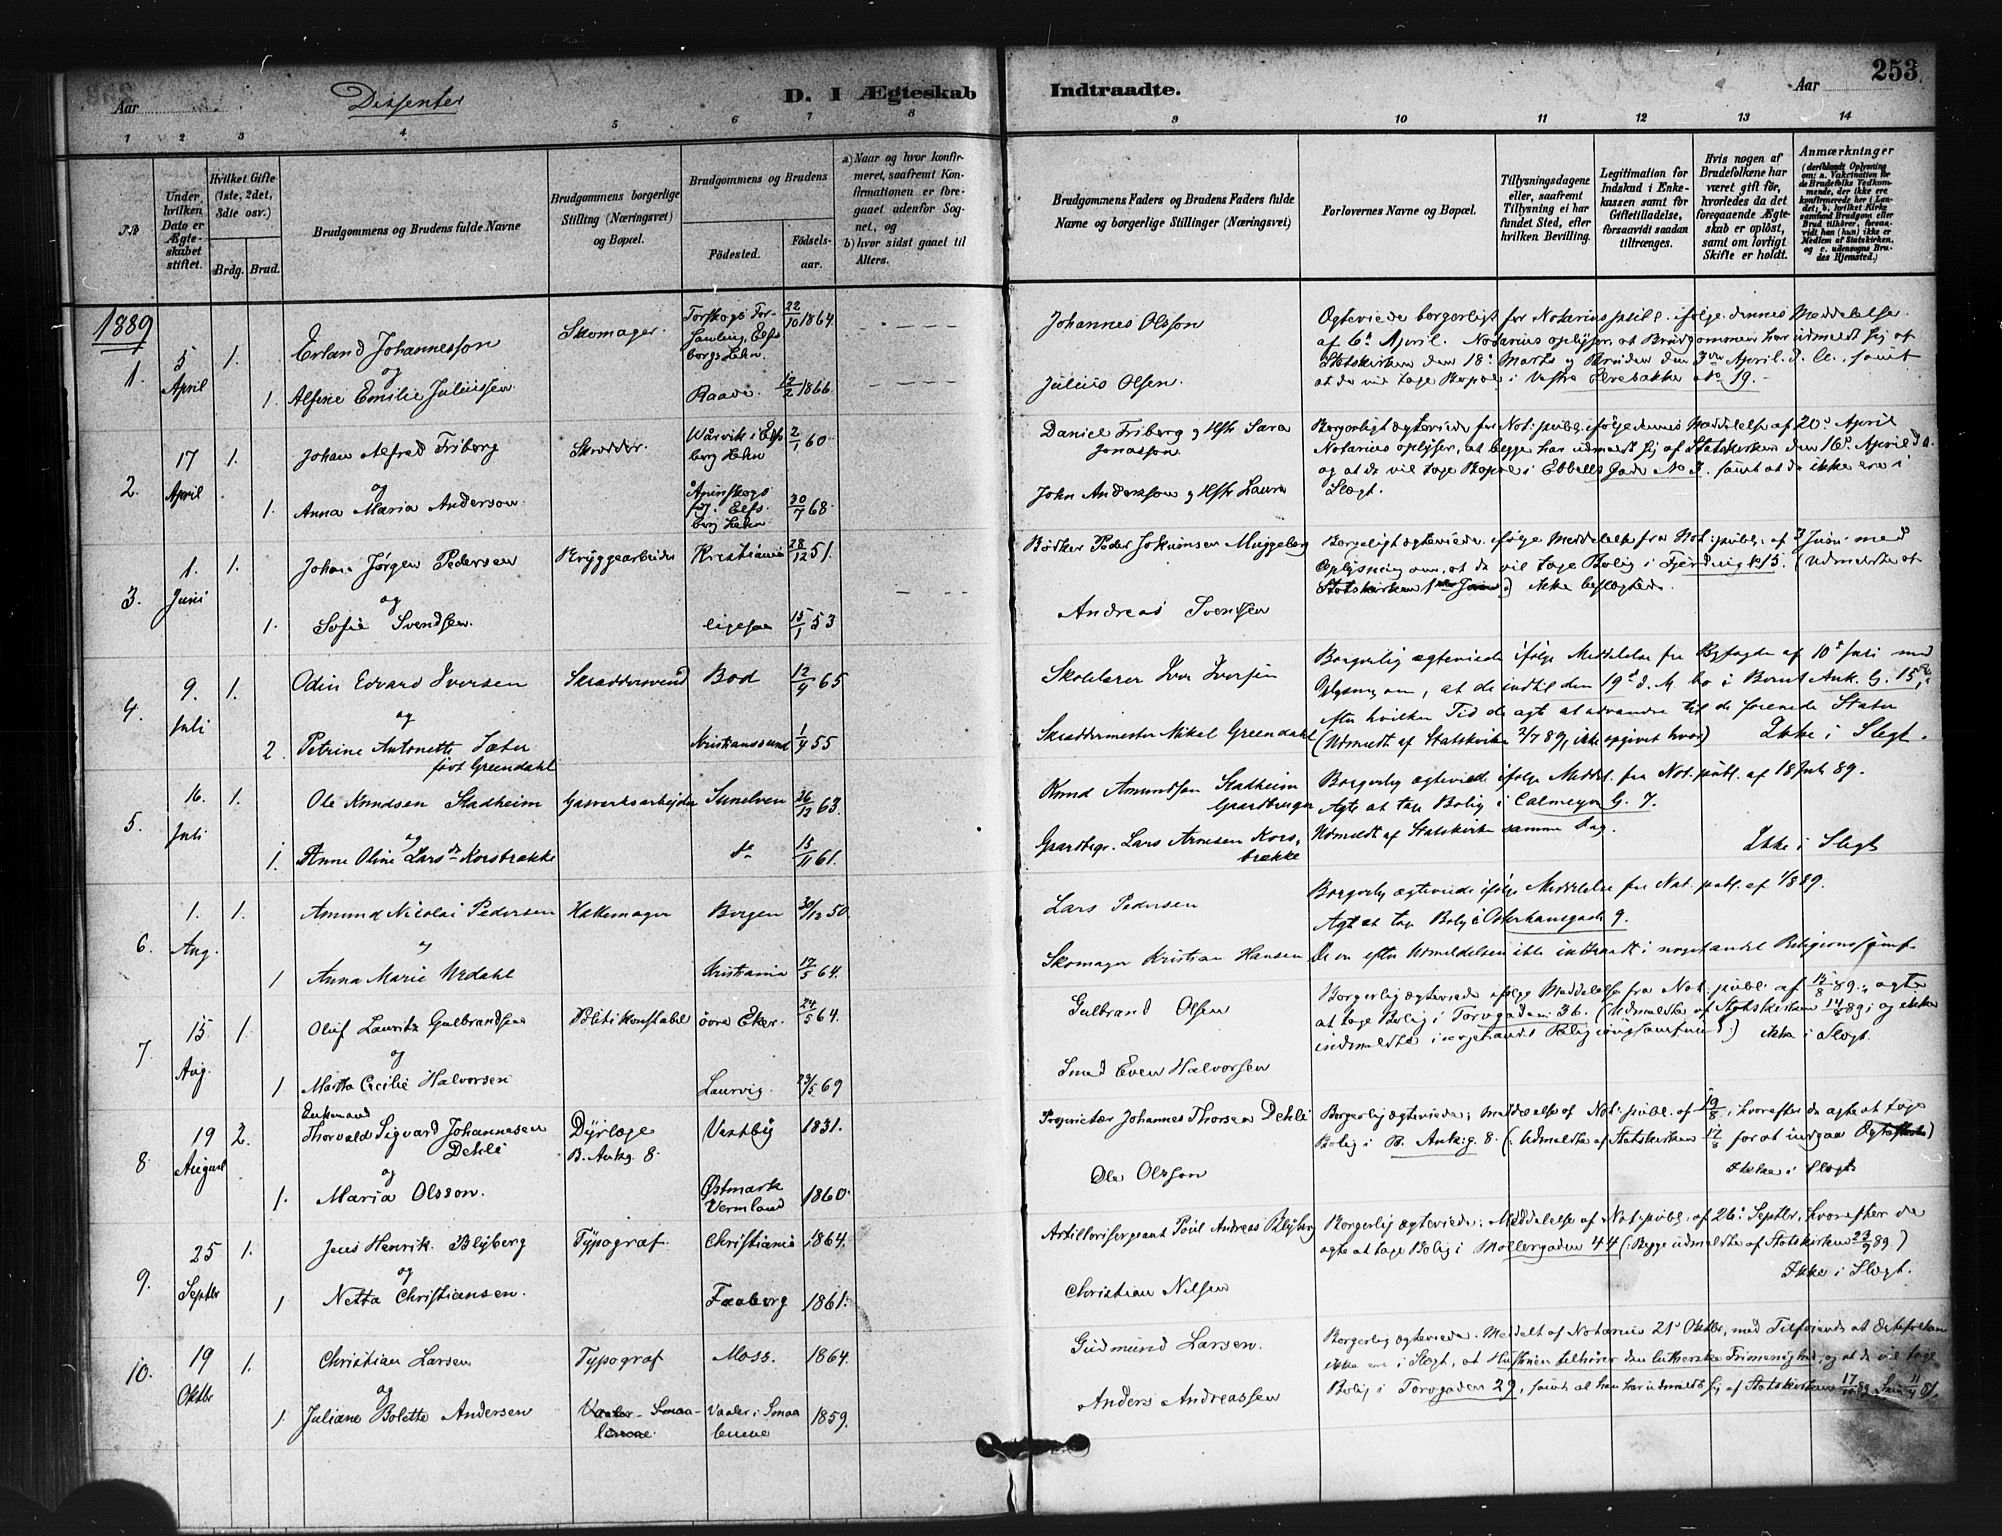 Aar
Dissenter
D. I Ægteskab
Indtraadte.
Aar
253
1 2 3 4 5 6 7 8 9 10 11 12 13 14
No
Under hvilken Dato er Ægteskabet stiftet.
Hvilket Gifte (1ste, 2det, 3die osv.)
Brdg. Brud.
Brudgommens og Brudens fulde Navne
Brudgommens borgerlige Stilling (Næringsvei) og Bopæl.
Brudgommens og Brudens
Fødested.
Fødselsaar.
a) Naar og hvor konfirmeret, saafremt Konfirmationen er foregaaet udenfor Sognet, og
b) hvor sidst gaaet til Alters.
Brudgommens Faders og Brudens Faders fulde Navne og borgerlige Stillinger (Næringsvei)
Forlovernes Navne og Bopæl.
Tillysningsdagene eller, saafremt Tillysning ei har fundet Sted, efter hvilken Bevilling.
Legitimation for Indskud i Enkekassen samt for Giftetilladelse, forsaavidt saadan tiltrænges.
Hvis nogen af Brudefolkene har været gift før, hvorledes da det foregaaende Ægteskab er opløst, samt om lovligt Skifte er holdt.
Anmærkninger
(deriblandt Oplysning om: a. Vakcination for de Brudefolks Vedkommende, der ikke ere konfirmerede her i Landet; b. hvilket Kirkesamfund Brudgom eller Brud tilhører, forsaavidt han (hun) ikke er Medlem af Statskirken, og c. udensogns Brudes Hjemsted.)
1889
1. 5 April 1. Erland Johannesson Skomager. Torskogs Forsamling, Elfsborgs Lehn 22/10 1864.
og
1. Alfine Emilie Juliussen Raade. 12/2 1866.
Johannes Olsson
Julius Olsen.
Ægteviede borgerligt for Notarius publ. ifølge dennes Meddelelse
af 6te April. Notarius oplyser, at Brudgommen har udmeldt sig af
Statskirken den 18de Marts og Bruden den 3die April d. A., samt
at de vil tage Bopæl i Vestre Elvebakke No 19.
2. 17 April 1. Johan Alfred Friberg Skrædder. Wårvik i Elfsborg Lehn 2/1 60.
og
1. Anna Maria Anderson Åmінskogs 30/7 68.
Daniel Friberg og Hstr Sara Jonasson
John Andersson og Hstr Laura
Borgerligt ægteviede for Not. publ. ifølge dennes Meddelelse af 20de April
Notarius oplyser, at begge har udmeldt sig af Statskirken den 16de April d. A.
og at de vil tage Bopæl i Ebbells Gade No 3. samt at de ikke ere i
Slægt.
3. 1. Juni 1. Johan Jørgen Pedersen Bryggearbeider Kristiania 28/12 51.
og
1. Sofie Svendsen. ligesaa 15/1 53
Bødker Peder Jokumsen Muggeberg
Andreas Svendsen
Borgerligt ægteviede ifølge Meddelelse fra Not. publ. af 3 Juni med
Oplysning om, at de vil tage Bolig i Fjerdingk 15. (Udmeldte af
Statskirken 1ste Juni) Ikke beslægtede.
4. 9. Juli 1. Odin Edvard Iversen Skræddersvend Bod 12/4 65
og
2. Petrine Antonette Sæter født Greendahl Kristianssund 1/4 55
Skolelærer Iver Iversen
Skræddermester Mikal Greendahl
Borgerlig ægteviede ifølge Meddelelse fra Byfogden af 10de Juli med
Oplysning om, at de indtil den 19de d. M. bo i Bernt Ank. G. 15,
efter hvilken Tid de agte at udvandre til de forenede Stater
(Udmeldt af Statskirken 2/7 89, ikke opgivet hvor) Ikke i Slegt.
5. 16. Juli 1. Ole Knudsen Stadheim Gasverksarbejder Sunelven 26/12 63.
og
1. Anne Oline Larsdtr Korsbrække do 13/11 61.
Knud Amundsen Stadheim Gaardbruger
Gaardbgr. Lars Arnesen Korsbrække
Borgerlig ægteviede ifølge Meddel. fra Not. publ. af 18 Juli 89.
Agte at tage Bolig i Calmeyer G. 7.
Udmeldt af Statskirken samme Dag. Ikke i Slegt
6. 1. Aug. 1. Amund Nicolai Pedersen Hakemager Bergen 30/12 50.
og
1 Anna Marie Nedahl Kristiania 17/5 64.
Lars Pedersen
Skomager Kristian Hansen
Borgerlig ægteviede ifølge Meddelelse fra Not. publ. af 1/8 89.
Agte at tage Bolig i Osterhausgade 9.
De er efter Udmeldelsen ikke indtraadt i noget andet Religionssamf.
7 15 Aug. 1. Oluf Lauritz Gulbrandsen Politikonstabel övre Eker. 24/5 64.
og
1 Martha Cecilie Halvorsen Laurvig. 23/5 69
Gulbrand Olsen
Smed Even Halvorsen
Borgerlig ægteviede ifølge Meddelelse fra Not. publ. af 15/8 89., agte
at tage Bolig i Torvgaden 36. (Udmeldte af Statskirken 14/8 89; og ikke
indmeldte i noget andet Religionssamfund.) ikke i Slægt.
8. 19 August 2. Enkemand Thorvald Sigvard Johannesen Dehli Dyrlæge B. Ankg. 8. Vestby 1831.
og
1. Maria Olsson. Østmark Vermland 1860.
Proprietær Johannes Thorsen Dehli
Ole Olsson
Borgerlig ægteviede; Meddelelse af Not. publ. af 19/8, hvorefter de agte at tage
Bolig i B. Ankg. 8. (Udmeldte af Statskirken 17/8 for at indgaa Ægteskab)
Ikke i Slægt
9. 25 Septbr 1. Jens Henrik Blyberg Typograf. Christiania 1864.
og
1 Netta Christiansen. Faaborg 1861.
Artillerisergeant Poul Andreas Blyberg
Christian Nilsen
Borgerlig ægteviede; Meddelelse af Not. publ. af 26de Septbr, hvorefter de
agte at tage Bolig i Møllergaden 44 (Begge udmeldte af Statskirken 23/9 89.)
Ikke i Slægt.
10. 19 Oktbr 1. Christian Larsen Typograf Moss. 1864.
og
1. Juliane Bolette Andersen Vaaler-Smaalenene. Vaaler i Smaalenene 1859.
Gudmund Larsen.
Anders Andreassen
Borgerlig ægteviede. Meddelt af Notarius 21de Oktbr, med Tilføiende at Ægtefolkene
ikke ere i Slægt, at Hustruen tilhører den lutherske Frimenighed, og at de vil tage
Bolig i Torvgaden 29, samt at han har udmeldt sig af Statskirken 17/10 89